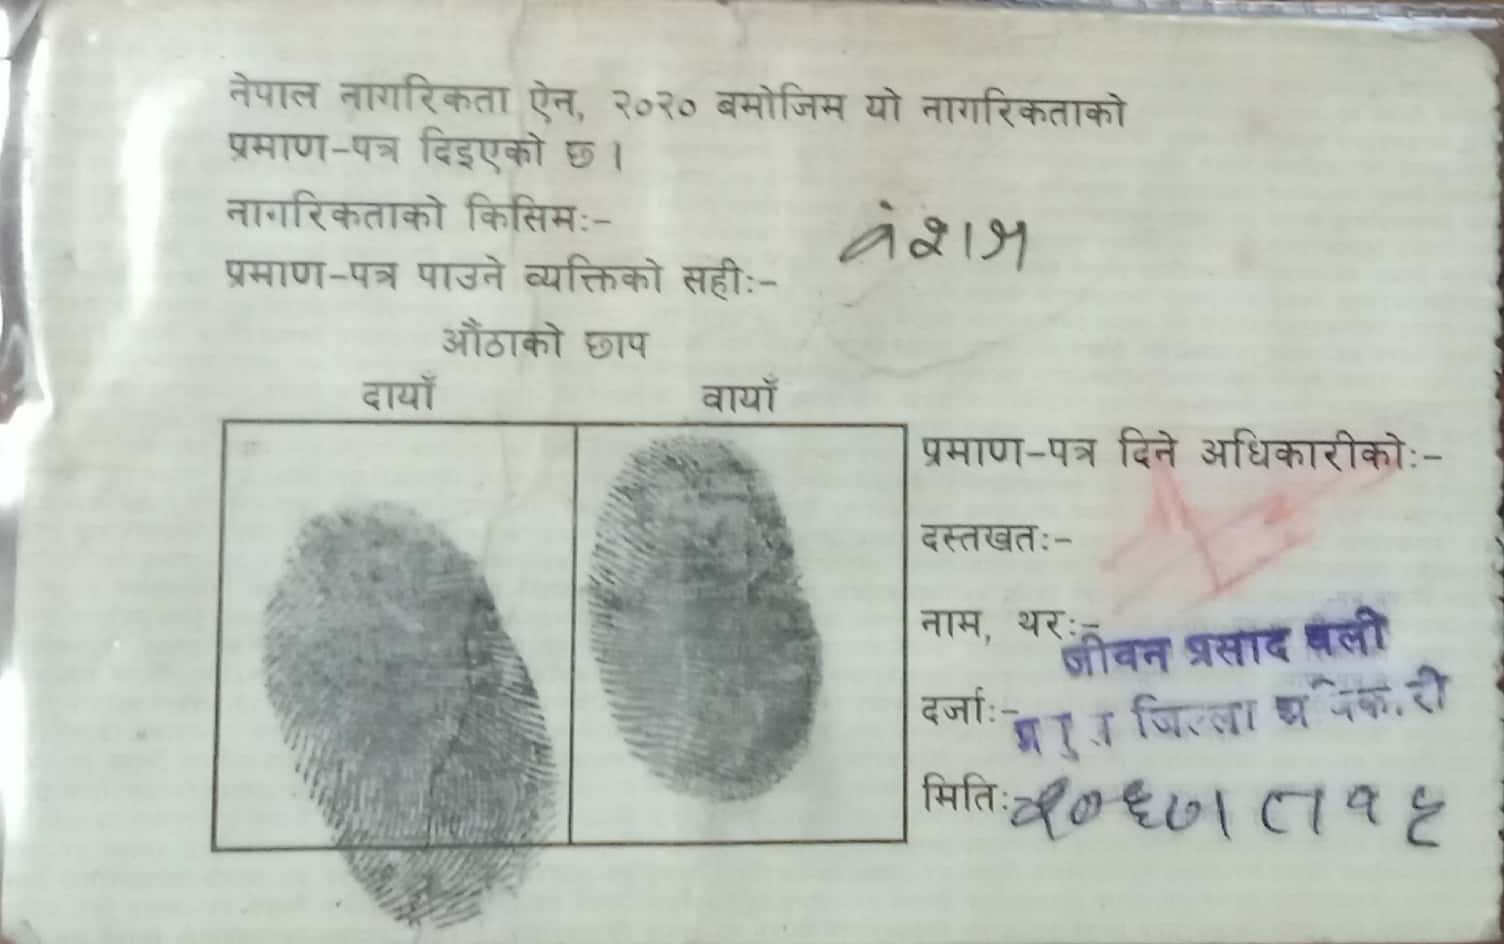 नेपाल नागरिकता ऐन, २०२० बमोजिम यो नागरिकताको
प्रमाण-पत्र दिइएको छ।
नागरिकताको किसिमः- वंशज
प्रमाण-पत्र पाउने व्यक्तिको सहीः-
औंठाको छाप
दायाँ वायाँ
प्रमाण-पत्र दिने अधिकारीकोः-
दस्तखतः-
नाम, थरः- जीवन प्रसाद वली
दर्जाः- जिल्ला
मितिः २०६७।८।१९